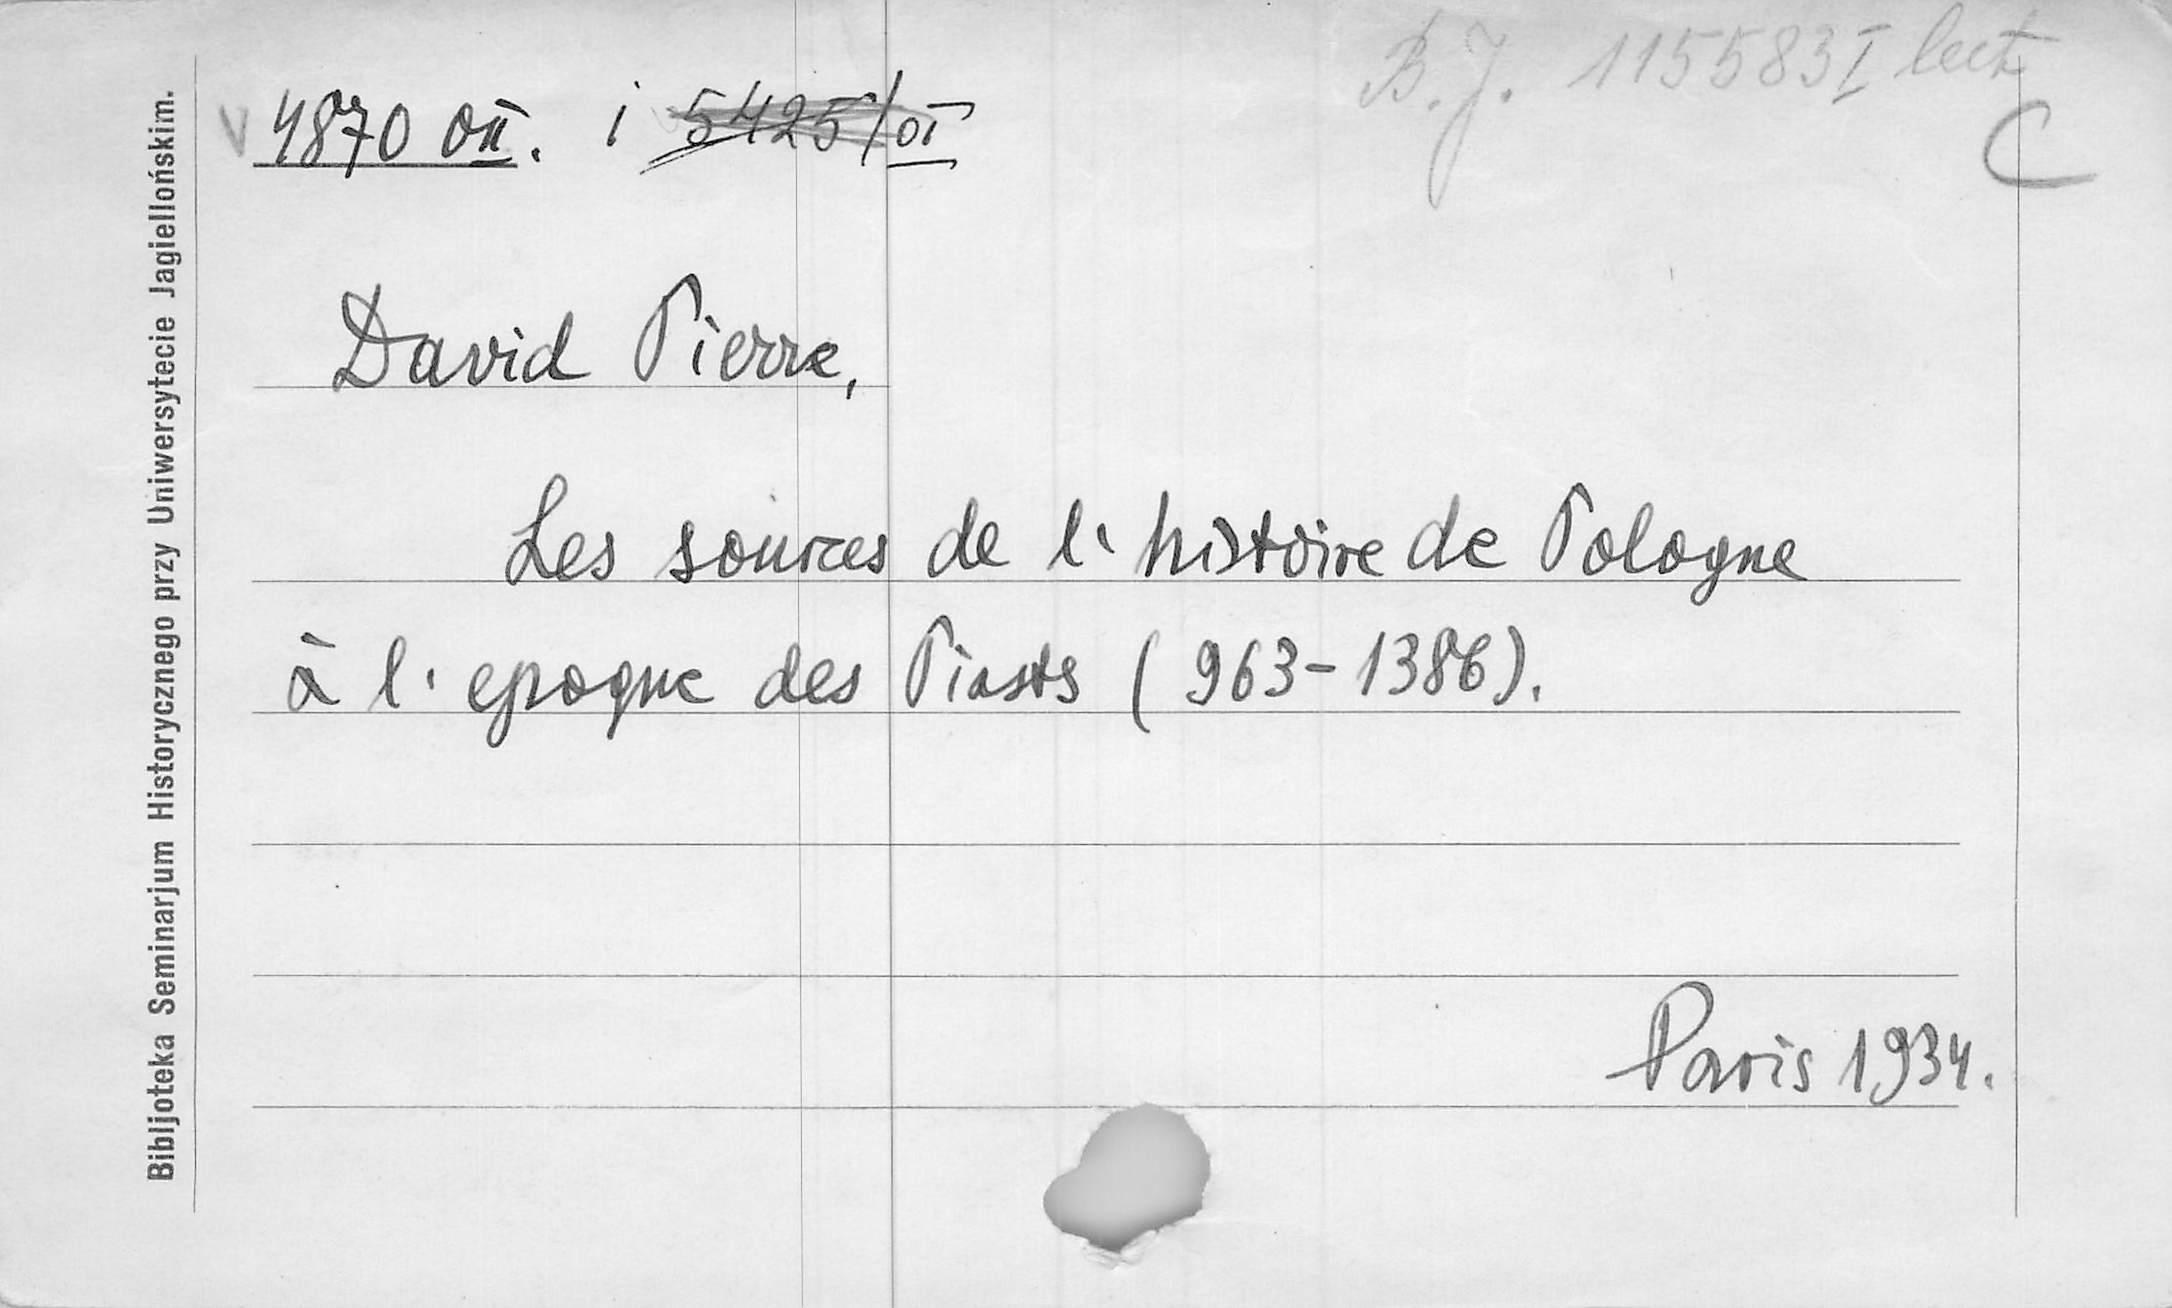 B. J. 115583 I lect
C
V 4870 OII. i 5425/OI
David Pierre,
Les sources de l'histoire de Pologne
à l'epoque des Piasts (963-1386).
Paris 1934.
Bibljoteka Seminarjum Historycznego przy Uniwersytecie Jagiellońskim.